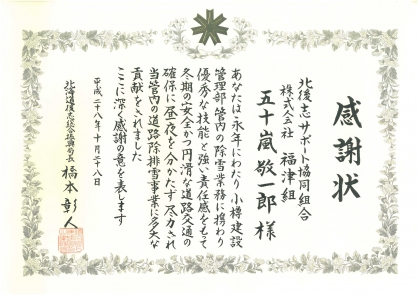 感謝状
北後志サポート協同組合
株式会社 福津組
五十嵐敬一郎 様
あなたは永年にわたり小樽建設
管理部管内の除雪業務に携わり
優秀な技能と強い責任感をもって
冬期の安全かつ円滑な道路交通の
確保に昼夜を分かたず尽力され
当管内の道路除排雪事業に多大な
貢献をされました
ここに深く感謝の意を表します
平成二十八年十月二十八日
北海道後志総合振興局長 橋本彰人